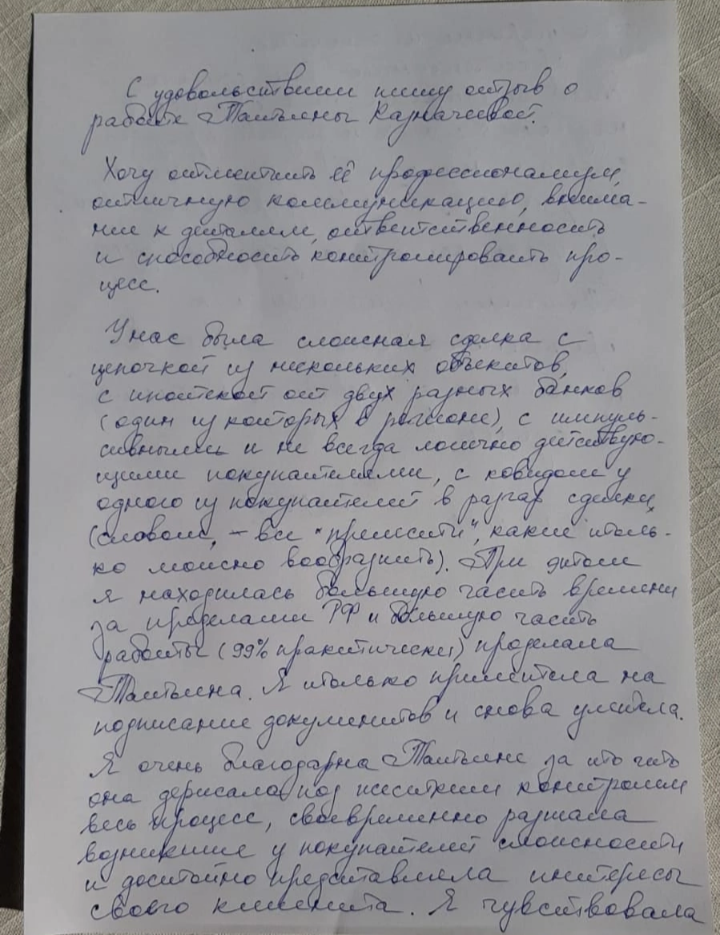 С удовольствием пишу отзыв о
работе Татьяны Казначеевой.
Хочу отметить её профессионализм,
отличную коммуникацию, внима-
ние к деталям, ответственность
и способность контролировать про-
цесс.
У нас была сложная сделка с
цепочкой из нескольких объектов,
с ипотекой от двух разных банков
(один из которых в регионе), с импуль-
сивными и не всегда логично действую-
щими покупателями, с ковидом у
одного из покупателей в разгар сделки
(словом, - все "прелести", какие толь-
ко можно вообразить). При этом
я находилась большую часть времени
за пределами РФ и большую часть
работы (99% практически) проделала
Татьяна. Я только прилетела на
подписание документов и снова улетела.
Я очень благодарна Татьяне за то что
она держала под жестким контролем
весь процесс, своевременно разжала
возникшие у покупателей сложности
и достойно представляла интересы
своего клиента. Я чувствовала